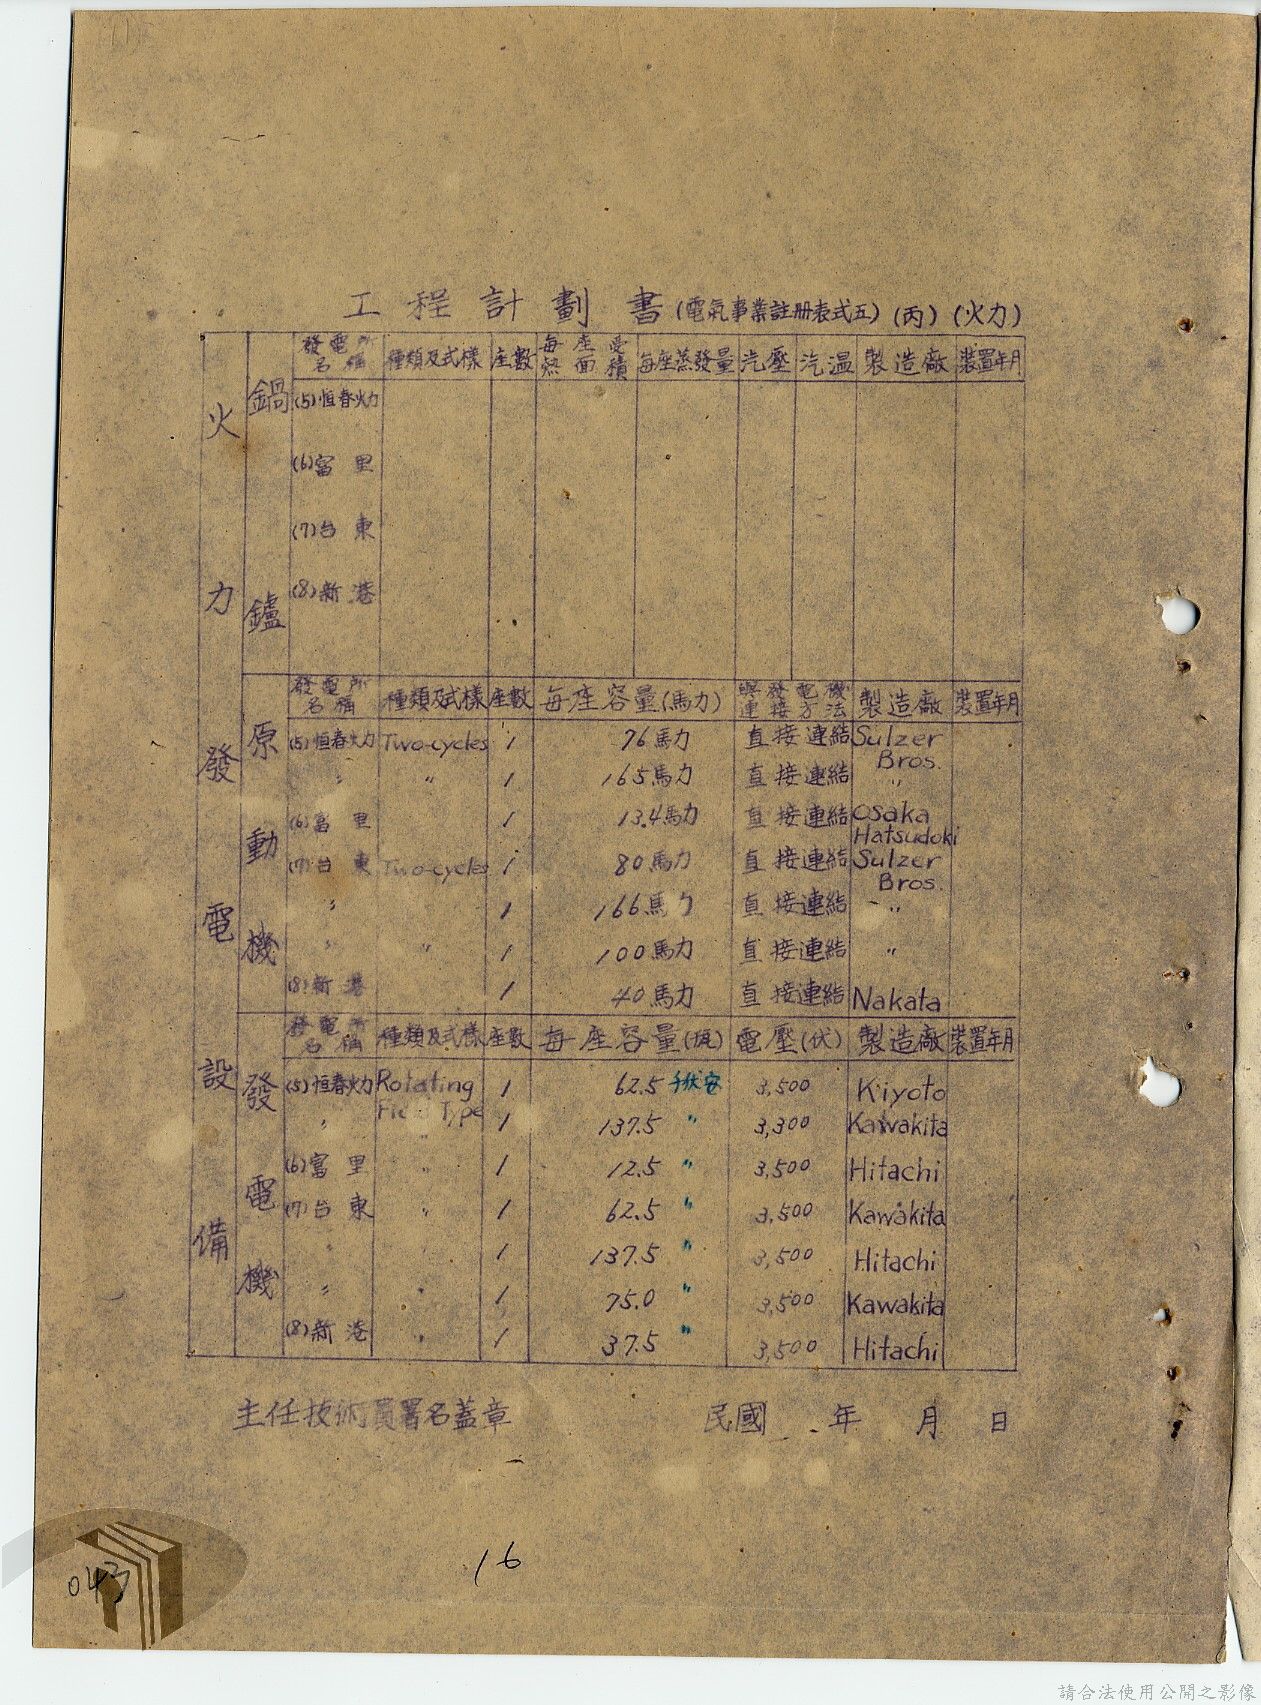 工程計劃書(電氣事業註册表式五)(丙)(火力)
火力發電設備
鍋鑪
發電所名稱 種類及式樣 座數 每座受熱面積 每座蒸發量 汽壓 汽温 製造廠 裝置年月
(5)恒春火力
(6)富里
(7)台東
(8)新港
原動機
發電所名稱 種類及式樣 座數 每座容量(馬力) 與發電機連接方法 製造廠 裝置年月
(5)恒春火力 Two-cycles 1 76馬力 直接連結 Sulzer Bros.
〃 〃 1 165馬力 直接連結 〃
(6)富里 1 13.4馬力 直接連結 Osaka Hatsudoki
(7)台東 Two-cycles 1 80馬力 直接連結 Sulzer Bros.
〃 1 166馬力 直接連結 〃
〃 〃 1 100馬力 直接連結 〃
(8)新港 1 40馬力 直接連結 Nakata
發電機
發電所名稱 種類及式樣 座數 每座容量(瓩) 電壓(伏) 製造廠 裝置年月
(5)恒春火力 Rotating Field Type 1 62.5千伏安 3,500 Kiyoto
〃 〃 1 137.5 〃 3,300 Kawakita
(6)富里 〃 1 12.5 〃 3,500 Hitachi
(7)台東 〃 1 62.5 〃 3,500 Kawakita
〃 〃 1 137.5 〃 3,500 Hitachi
〃 〃 1 75.0 〃 3,500 Kawakita
(8)新港 〃 1 37.5 〃 3,500 Hitachi
主任技術員署名蓋章 民國 年 月 日
16
043
請合法使用公開之影像